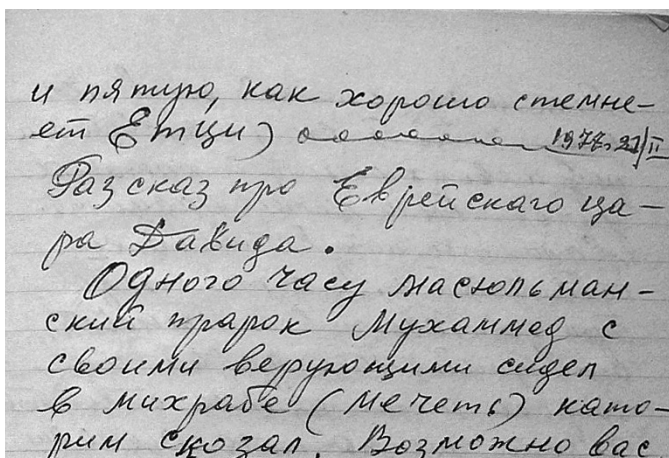 и пятую, как хорошо стемне-
ет Етци) 1977. 21/II
Разсказ про Еврейскаго ца-
ра Давида.
Одного часу масюльман-
ский прарок Мухаммед с
своими верующими сидел
в михрабе (мечеть) като-
рим скозал. Возможно вас